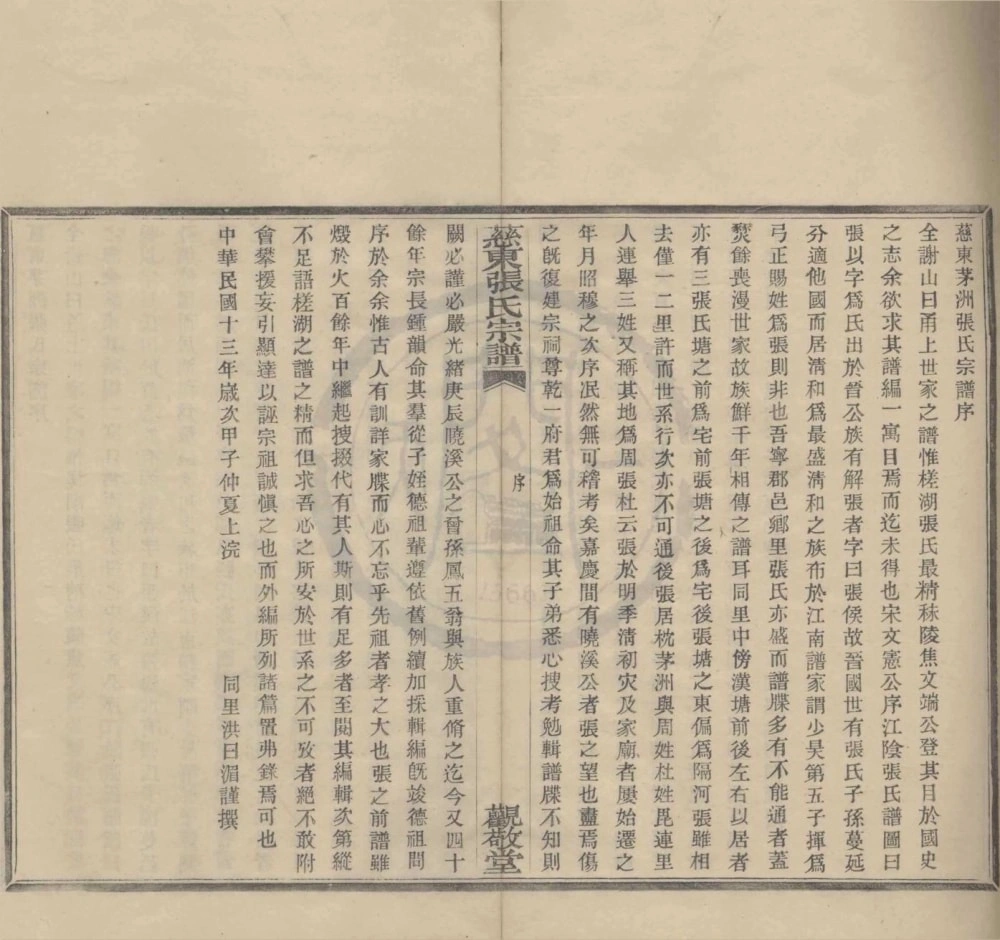 慈東茅洲張氏宗譜序
全謝山曰甬上世家之譜惟槎湖張氏最精秣陵焦文端公登其目於國史
之志余欲求其譜編一寓目焉而迄未得也宋文憲公序江陰張氏譜圖曰
張以字爲氏出於晉公族有解張者字曰張侯故晉國世有張氏子孫蔓延
分適他國而居淸和爲最盛淸和之族布於江南譜家謂少昊第五子揮爲
弓正賜姓爲張則非也吾寧郡邑鄉里張氏亦盛而譜牒多有不能通者蓋
焚餘喪漫世家故族鮮千年相傳之譜耳同里中傍漢塘前後左右以居者
亦有三張氏塘之前爲宅前張塘之後爲宅後張塘之東偏爲隔河張雖相
去僅一二里許而世系行次亦不可通後張居枕茅洲與周姓杜姓毘連里
人連舉三姓又稱其地爲周張杜云張於明季淸初灾及家廟者屢始遷之
年月昭穆之次序泯然無可稽考矣嘉慶間有曉溪公者張之望也衋焉傷
之旣復建宗祠尊乾一府君爲始祖命其子弟悉心搜考勉輯譜牒不知則
慈東張氏宗譜
序
觀敬堂
闕必謹必嚴光緖庚辰曉溪公之晉孫鳳五翁與族人重脩之迄今又四十
餘年宗長鍾韻命其羣從子姪德祖輩遵依舊例續加採輯編旣竣德祖問
序於余余惟古人有訓詳家牒而心不忘乎先祖者孝之大也張之前譜雖
燬於火百餘年中繼起搜掇代有其人斯則有足多者至閱其編輯次第縱
不足語槎湖之譜之精而但求吾心之所安於世系之不可攷者絕不敢附
會攀援妄引顯達以誣宗祖誠愼之也而外編所列諸篇置弗錄焉可也
中華民國十三年歲次甲子仲夏上浣
同里洪日湄謹撰